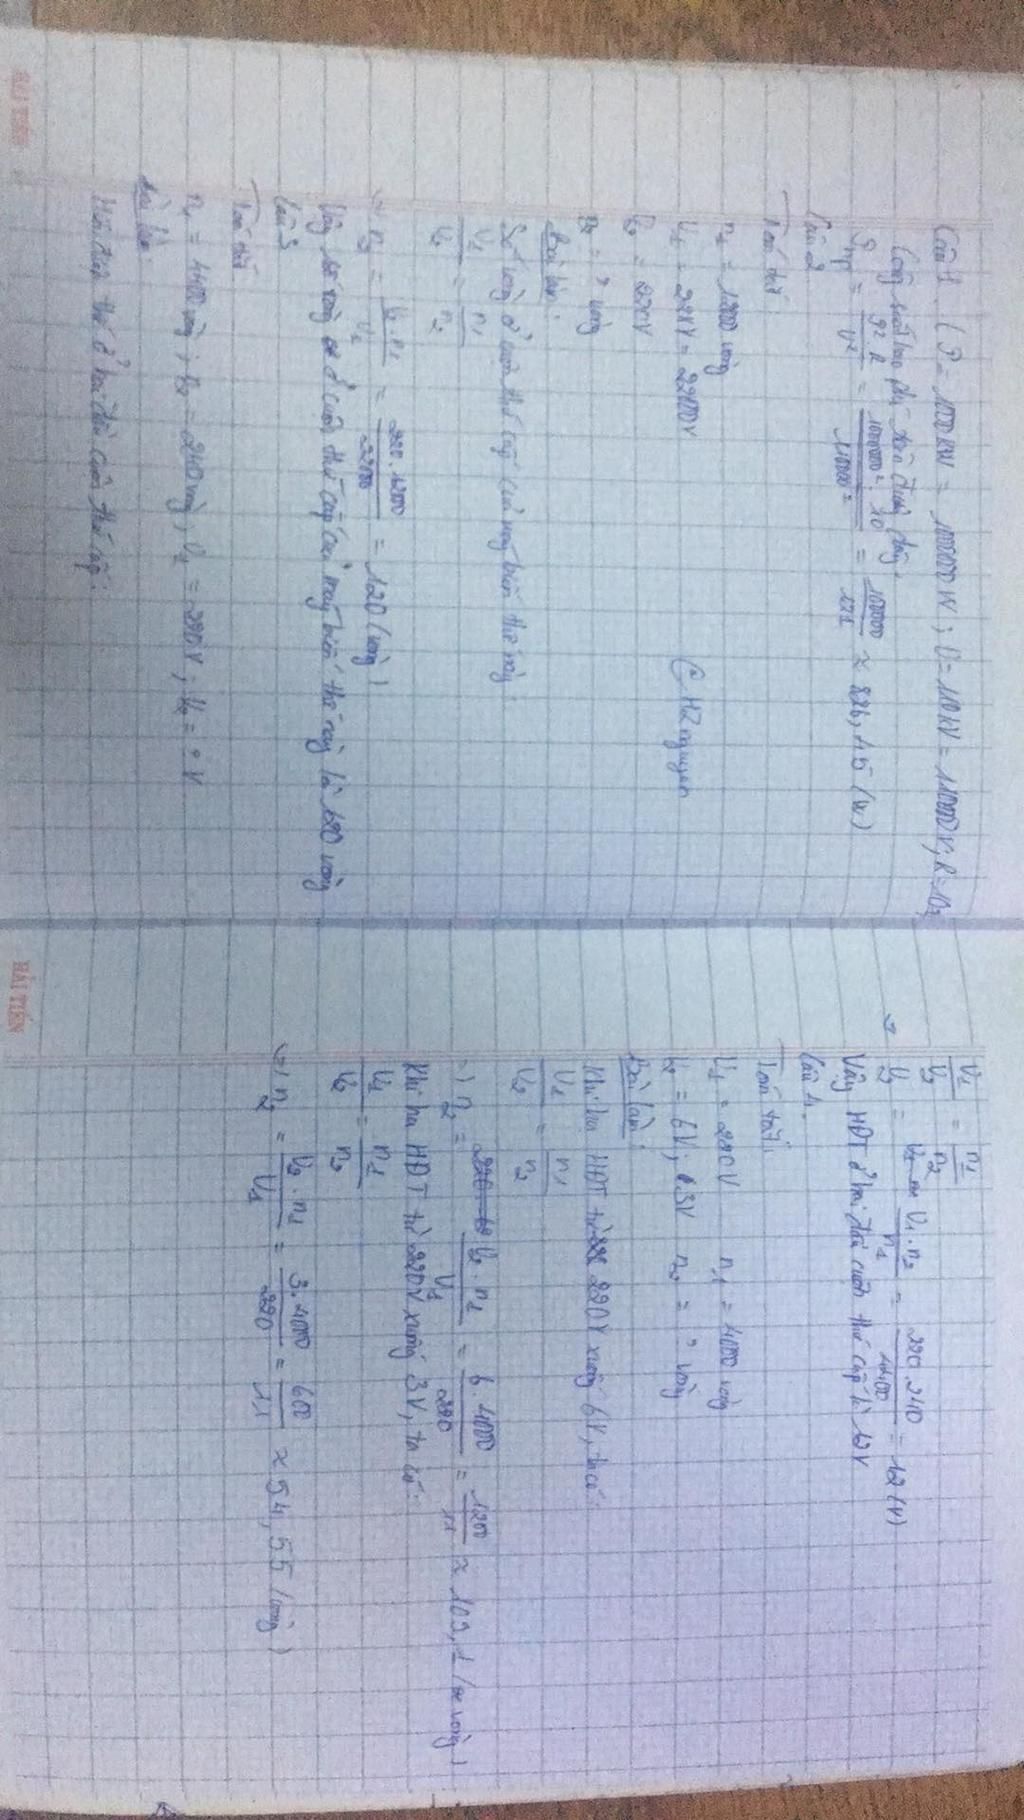 Câu 1. (P = 1000 kW = 1000000 W; U = 110 kV = 110000 V; R = 10
Công suất hao phí trên đường dây.
P hp = P² R / U² = 1000000² . 10 / 110000² = 100000 / 121 ≈ 826,45 (W)
Câu 2
Tóm tắt:
n₁ = 1200 vòng
U₁ = V = 2200 V
U₂ = 220V
n₂ = ? vòng
© HZnguyen
Bài làm:
Số vòng ở cuộn thứ cấp của máy biến thế này
U₁ / U₂ = n₁ / n₂
→ n₂ = U₂ . n₁ / U₁ = 220 . 1200 / 2200 = 120 (vòng)
Vậy số vòng ở cuộn thứ cấp của máy biến thế này là 120 vòng
Câu 3
Tóm tắt
n₁ = 4400 vòng; n₂ = 240 vòng; U₁ = 220V; U₂ = ? V
Bài làm
Hiệu điện thế ở hai đầu cuộn thứ cấp:
U₁ / U₂ = n₁ / n₂
→ U₂ = U₁ . n₂ / n₁ = 220.240 / 4400 = 12 (V)
Vậy HĐT ở hai đầu cuộn thứ cấp là 12V
Câu 4.
Tóm tắt:
U₁ = 220V n₁ = 4000 vòng
U₂ = 6V; 3V n₂ = ? vòng
Bài làm:
Khi hạ HĐT từ 220V xuống 6V, ta có:
U₁ / U₂ = n₁ / n₂
→ n₂ = U₂ . n₁ / U₁ = 6 . 4000 / 220 = 1200 / 11 ≈ 109,1 (vòng)
Khi hạ HĐT từ 220V xuống 3V, ta có:
U₁ / U₂ = n₁ / n₂
→ n₂ = U₂ . n₁ / U₁ = 3 . 4000 / 220 = 600 / 11 ≈ 54,55 (vòng)
HẢI TIẾN
HẢI TIẾN